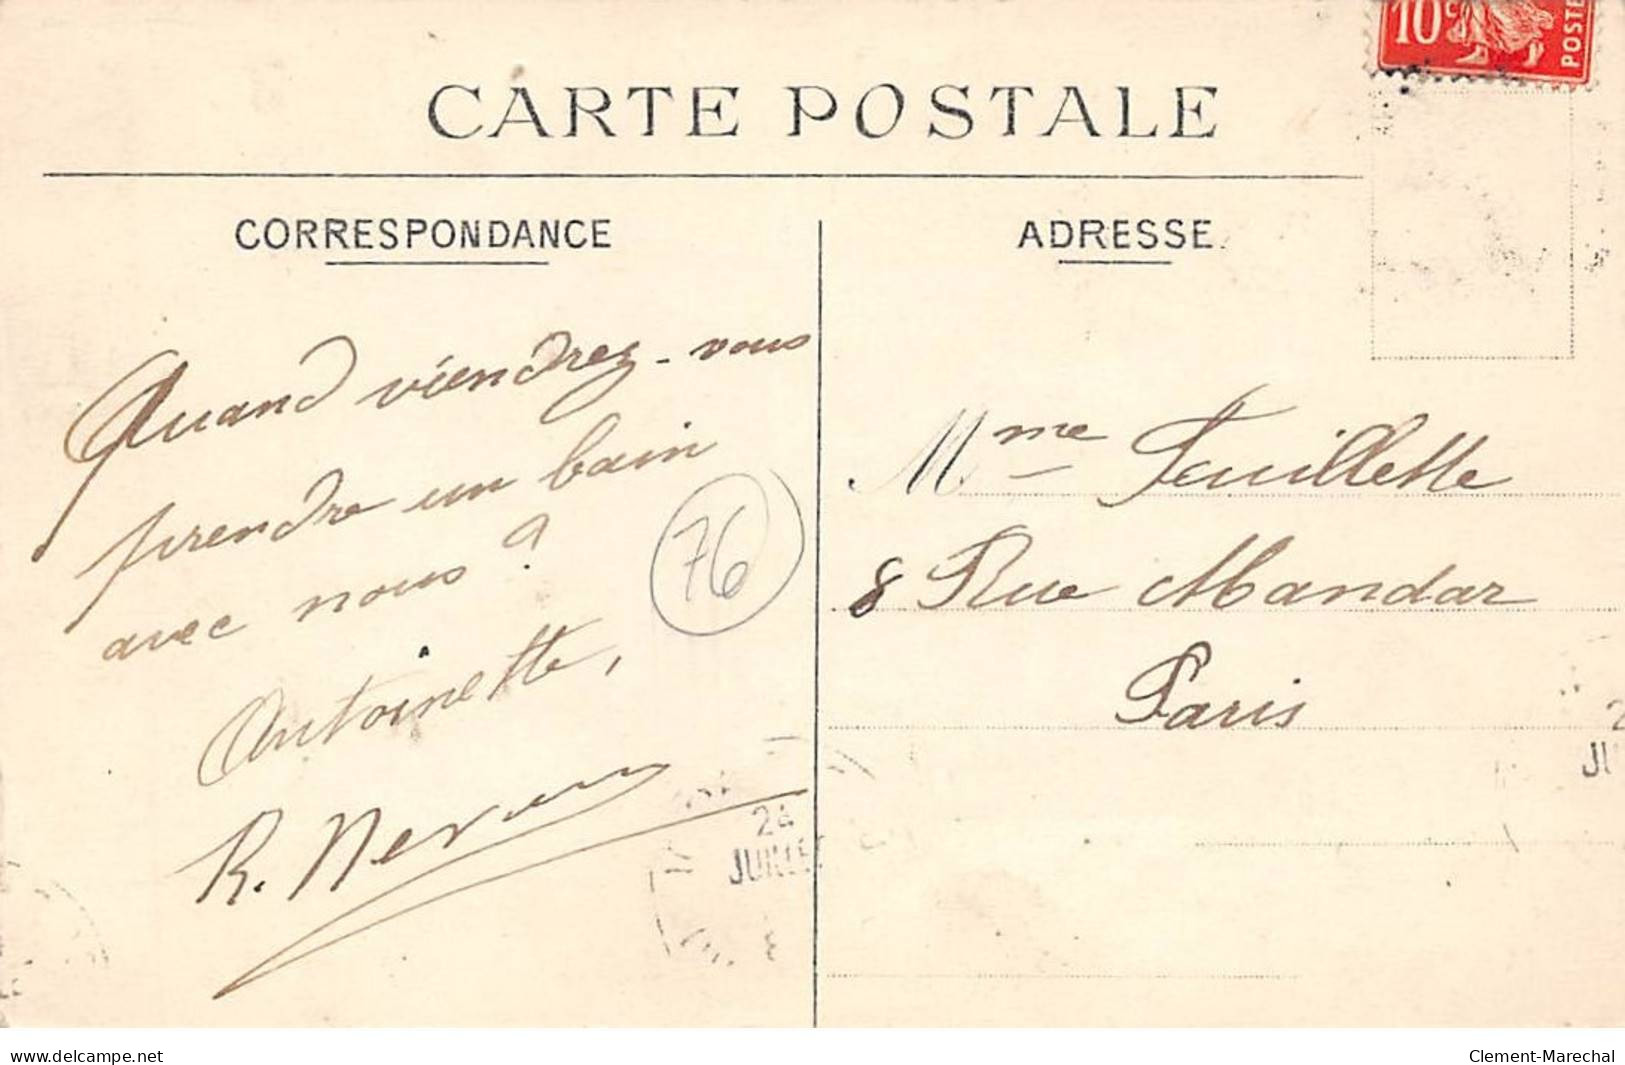 10c
POSTE
CARTE POSTALE
CORRESPONDANCE
ADRESSE
Quand viendrez-vous
prendre un bain
avec nous ?
Antoinette,
R.
76
Mme Feuillette
8 Rue Mandar
Paris
24
JUILLE
JUI
www.delcampe.net
Clement-Marechal